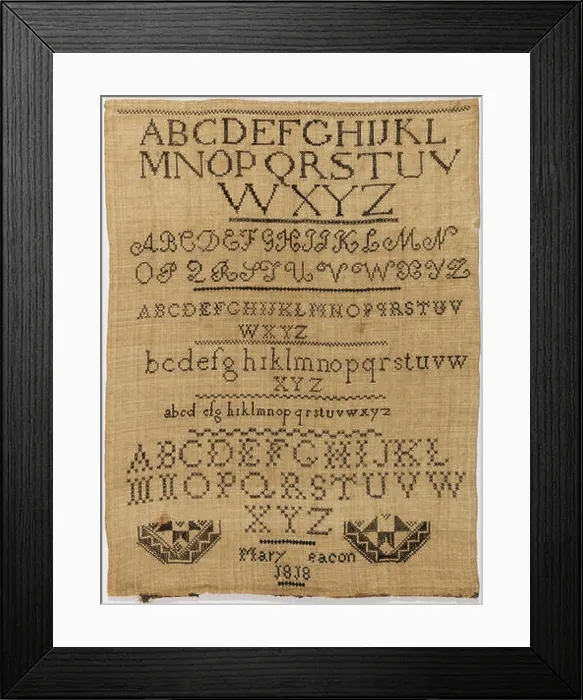 ABCDEFGHIJKL
MNOPQRSTUV
WXYZ
ABCDEFGHIJKLMN
OPQRSTUVWXYZ
ABCDEFGHIJKLMNOPQRSTUV
WXYZ
bcdefghiklmnopqrstuvw
XYZ
abcd efg hiklmnopqrstuvwxyz
ABCDEFGHIJKL
MNOPQRSTUVW
XYZ
Mary eacon
1818